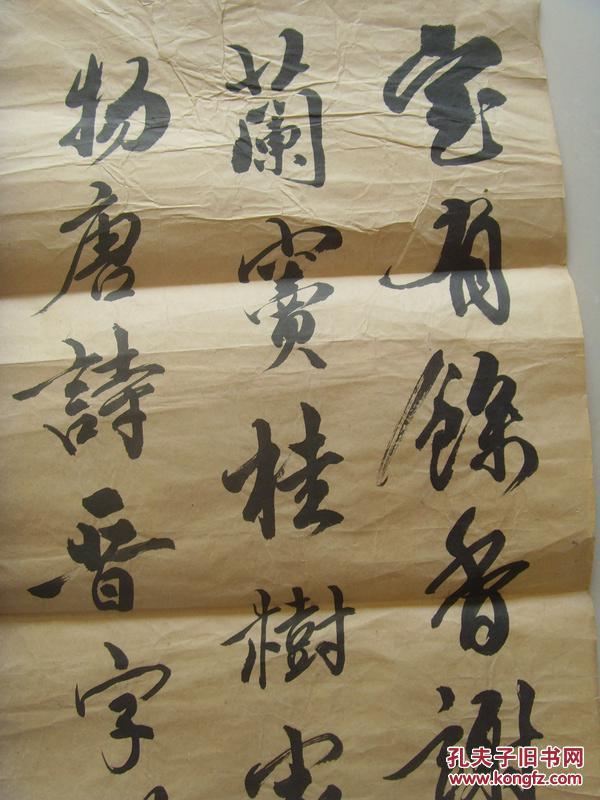 室有餘香謝
蘭竇桂樹
物唐詩晋字
孔夫子旧书网
www.kongfz.com